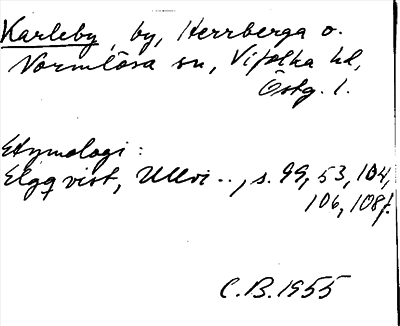 Karleby, by, Herrberga o.
Normlösa sn, Vifolka hd,
Östg. l.
Etymologi:
Elgqvist, Ullvi.., s. 99, 53, 104,
106, 108f.
C.B. 1955